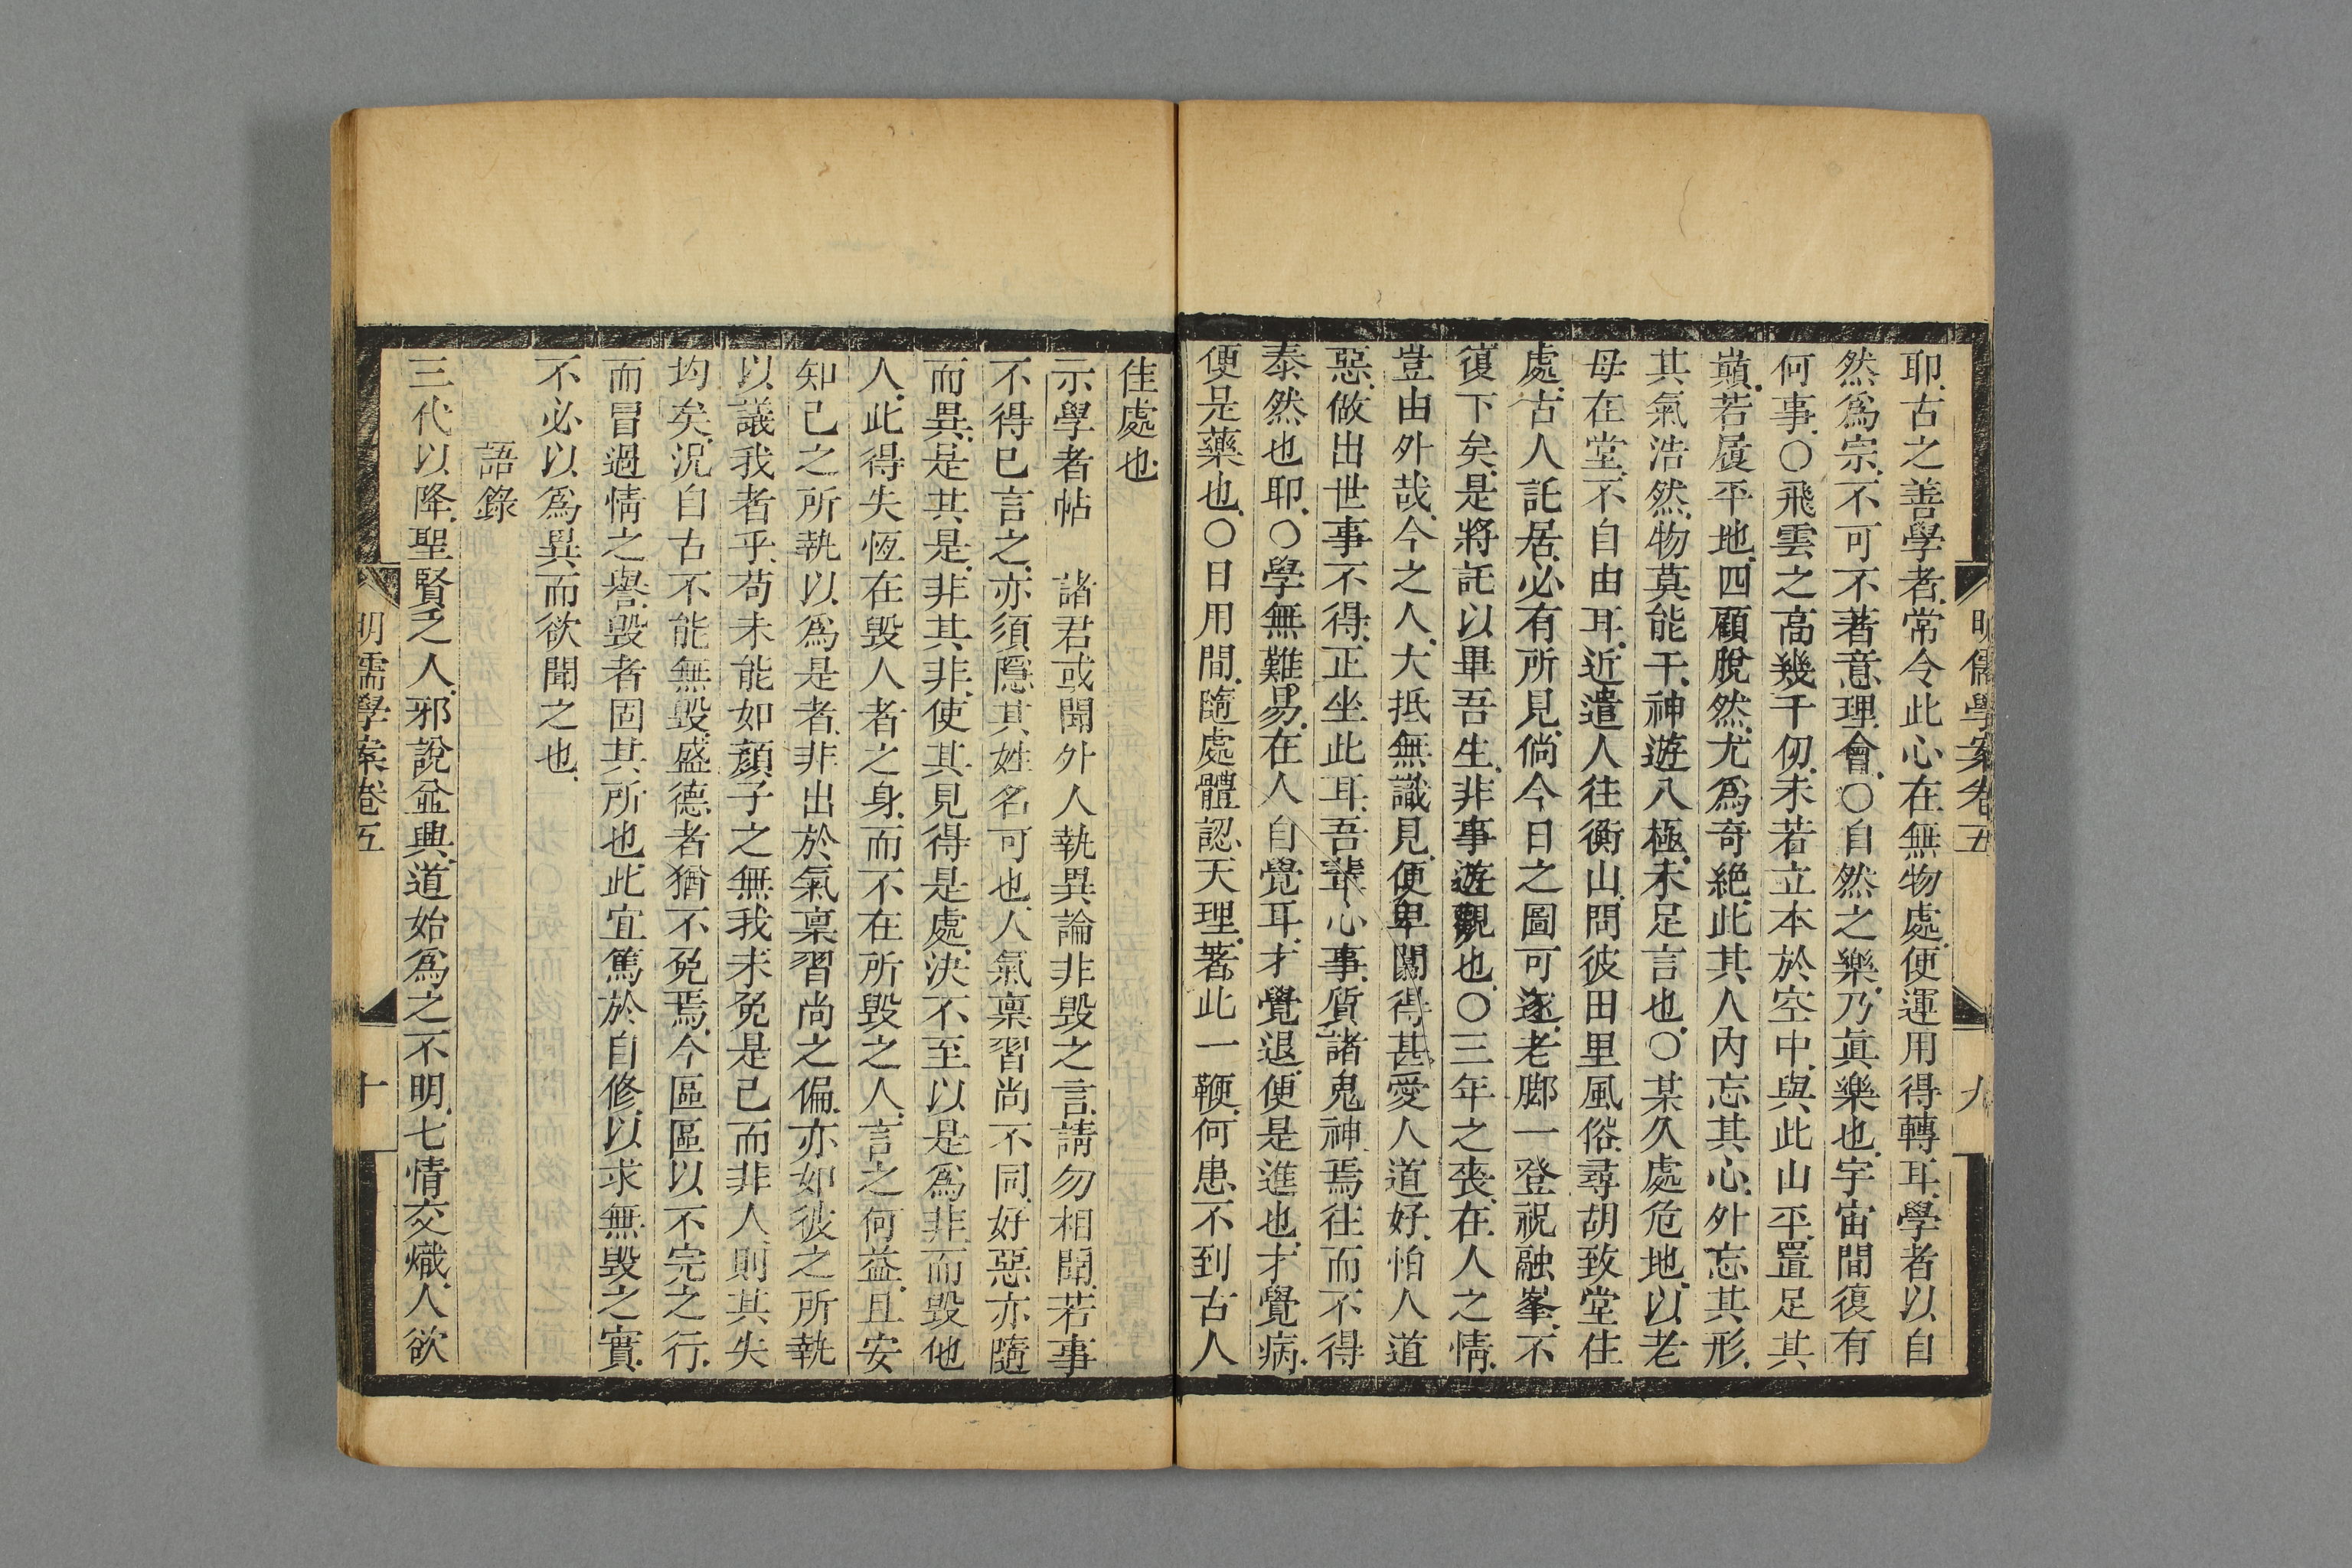 明儒學案卷五
九
耶、古之善學者、常令此心在無物處、便運用得轉耳、學者以自
然爲宗、不可不著意理會、○自然之樂、乃眞樂也、宇宙間復有
何事、○飛雲之高幾千仞、未若立本於空中、與此山平、置足其
巔、若履平地、四顧脫然、尤爲奇絕、此其人內忘其心、外忘其形、
其氣浩然、物莫能干、神遊八極、未足言也、○某久處危地、以老
母在堂、不自由耳、近遣人往衡山、問彼田里風俗、尋胡致堂住
處、古人託居、必有所見、倘今日之圖可遂、老脚一登祝融峯、不
復下矣、是將託以畢吾生、非事遊觀也、○三年之喪、在人之情、
豈由外哉、今之人、大抵無識見、便卑闒得甚、愛人道好、怕人道
惡、做出世事不得、正坐此耳、吾輩心事、質諸鬼神、焉往而不得
泰然也耶、○學無難易、在人自覺耳、才覺退、便是進也、才覺病、
便是藥也、○日用間、隨處體認天理、著此一鞭、何患不到古人
佳處也、
示學者帖　諸君或聞外人執異論非毀之言、請勿相聞、若事
不得已言之、亦須隱其姓名可也、人氣稟習尚不同、好惡亦隨
而異、是其是、非其非、使其見得是處、決不至以是爲非而毀他
人、此得失恆在毀人者之身、而不在所毀之人、言之何益、且安
知己之所執以爲是者、非出於氣稟習尚之偏、亦如彼之所執
以議我者乎、苟未能如顏子之無我、未免是己而非人、則其失
均矣、況自古不能無毀、盛德者猶不免焉、今區區以不完之行、
而冒過情之譽、毀者固其所也、此宜篤於自修、以求無毀之實、
不必以爲異而欲聞之也、
語錄
三代以降、聖賢乏人、邪說並興、道始爲之不明、七情交熾、人欲
明儒學案卷五
十